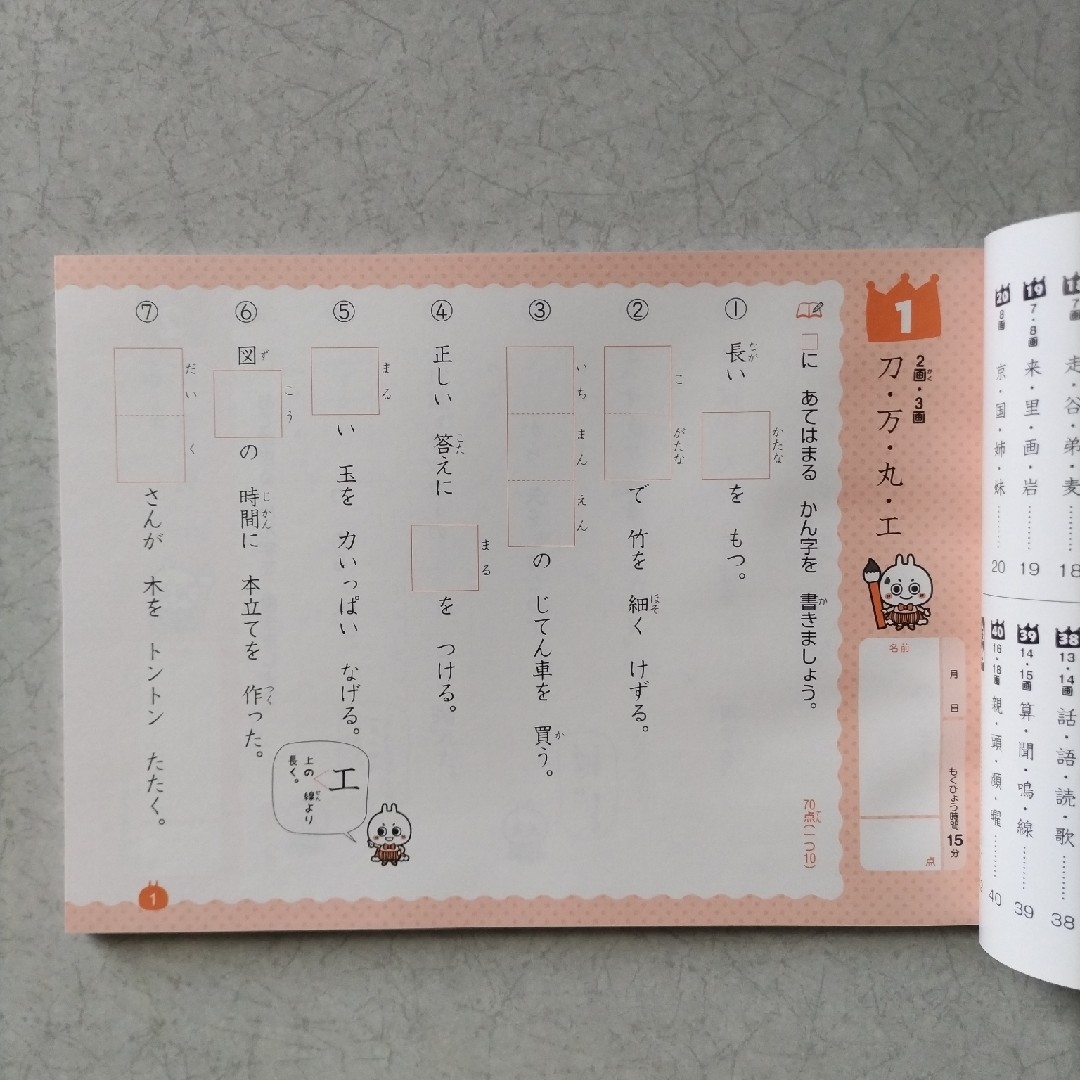 1
2画・3画
かく
刀・万・丸・工
名前
月 日
もくひょう時間 15分
点
□に あてはまる かん字を 書きましょう。
か
70点(一つ10)
てん
① 長い □を もつ。
なが かたな
② □□で 竹を 細く けずる。
こ がたな ほそ
③ □□□の じてん車を 買う。
いち まん えん か
④ 正しい 答えに □を つける。
こた まる
⑤ □い 玉を 力いっぱい なげる。
まる
⑥ 図□の 時間に 本立てを 作った。
ず こう じかん つく
⑦ □□さんが 木を トントン たたく。
だい く
工
上の 線より
せん
長く。
1
走・谷・弟・麦……… 18
19 7・8画 来・里・画・岩……… 19
20 8画 京・国・姉・妹……… 20
38 13・14画 話・語・読・歌……… 38
39 14・15画 算・聞・鳴・線……… 39
40 16・18画 親・頭・顔・曜……… 40